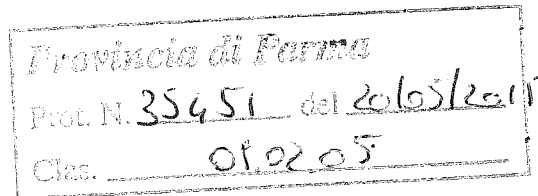 Provincia di Parma
Prot. N. 35451 del 20/05/2011
Clas. 01.02.05